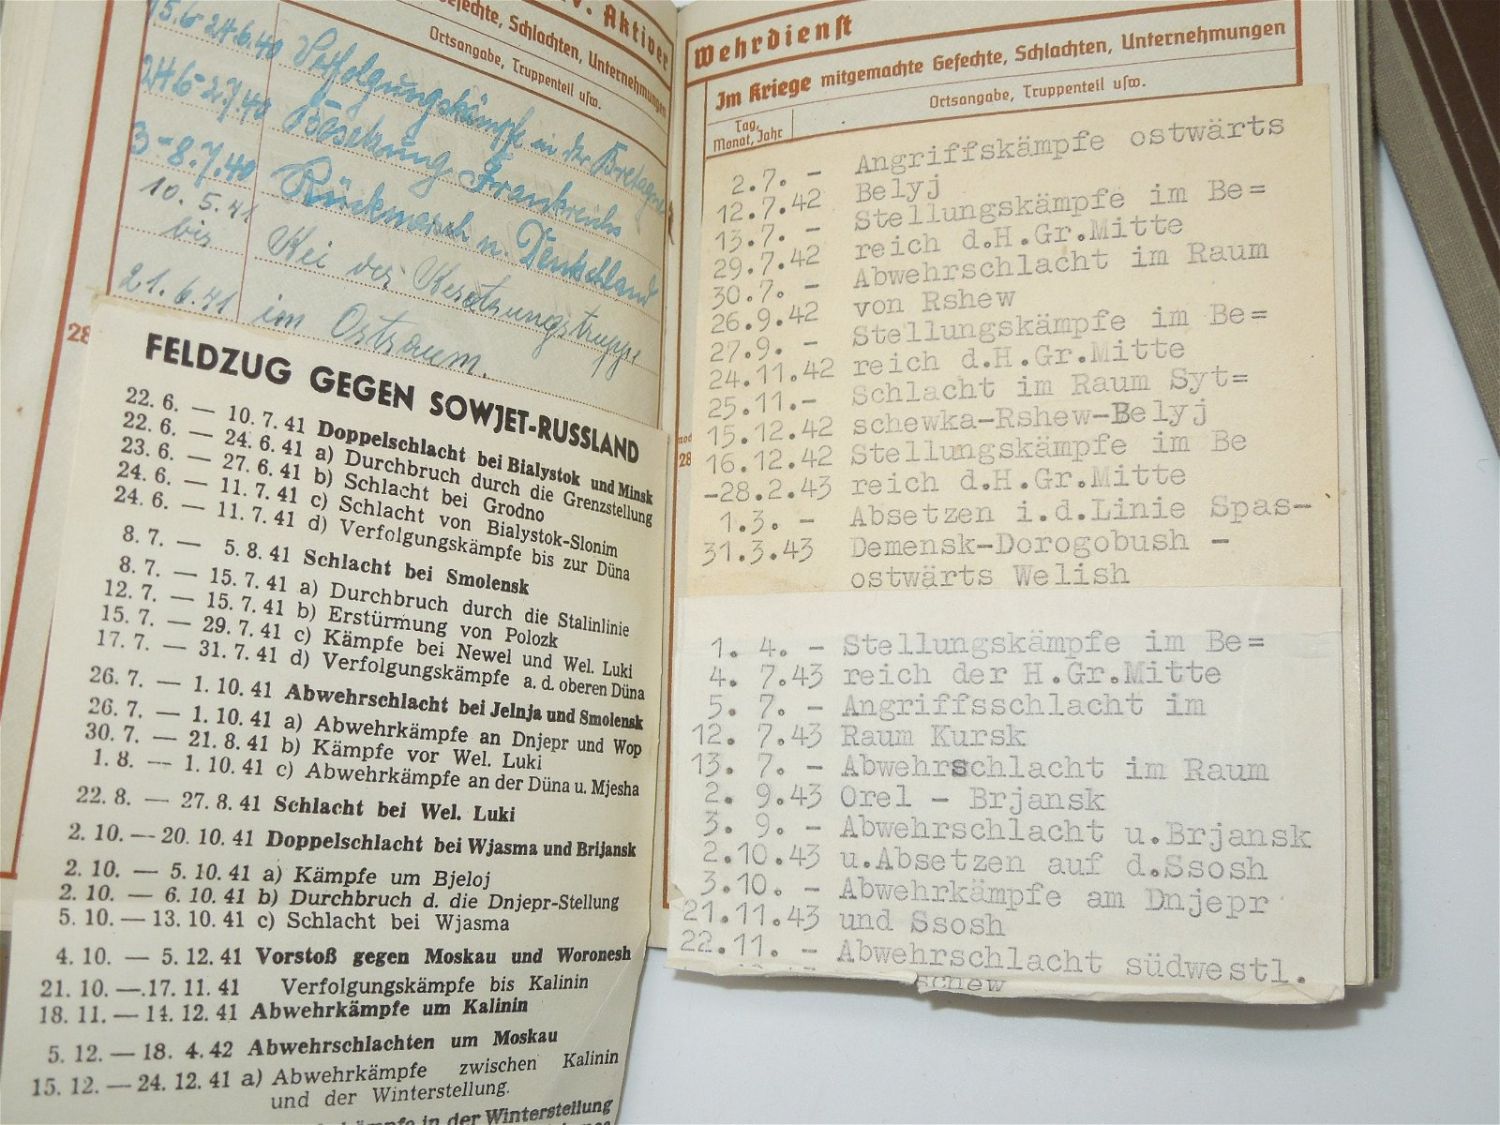 v. Aktiver
Gefechte, Schlachten, Unternehmungen
Ortsangabe, Truppenteil usw.
15.6-24.6.40 Verfolgungskämpfe in der Bretagne
24.6-2.7.40 Besetzung Frankreichs
3.-8.7.40 Rückmarsch n. Deutschland
10.5.41 bis Bei der Besatzungstruppe
21.6.41 im Ostraum.
28
FELDZUG GEGEN SOWJET-RUSSLAND
22. 6. — 10. 7. 41 Doppelschlacht bei Bialystok und Minsk
22. 6. — 24. 6. 41 a) Durchbruch durch die Grenzstellung
23. 6. — 27. 6. 41 b) Schlacht bei Grodno
24. 6. — 11. 7. 41 c) Schlacht von Bialystok-Slonim
24. 6. — 11. 7. 41 d) Verfolgungskämpfe bis zur Düna
8. 7. — 5. 8. 41 Schlacht bei Smolensk
8. 7. — 15. 7. 41 a) Durchbruch durch die Stalinlinie
12. 7. — 15. 7. 41 b) Erstürmung von Polozk
15. 7. — 29. 7. 41 c) Kämpfe bei Newel und Wel. Luki
17. 7. — 31. 7. 41 d) Verfolgungskämpfe a. d. oberen Düna
26. 7. — 1. 10. 41 Abwehrschlacht bei Jelnja und Smolensk
26. 7. — 1. 10. 41 a) Abwehrkämpfe an Dnjepr und Wop
30. 7. — 21. 8. 41 b) Kämpfe vor Wel. Luki
1. 8. — 1. 10. 41 c) Abwehrkämpfe an der Düna u. Mjesha
22. 8. — 27. 8. 41 Schlacht bei Wel. Luki
2. 10. — 20. 10. 41 Doppelschlacht bei Wjasma und Brijansk
2. 10. — 5. 10. 41 a) Kämpfe um Bjeloj
2. 10. — 6. 10. 41 b) Durchbruch d. die Dnjepr-Stellung
5. 10. — 13. 10. 41 c) Schlacht bei Wjasma
4. 10. — 5. 12. 41 Vorstoß gegen Moskau und Woronesh
21. 10. —.17. 11. 41 Verfolgungskämpfe bis Kalinin
18. 11. — 14. 12. 41 Abwehrkämpfe um Kalinin
5. 12. — 18. 4. 42 Abwehrschlachten um Moskau
15. 12. — 24. 12. 41 a) Abwehrkämpfe zwischen Kalinin
und der Winterstellung.
in der Winterstellung
Wehrdienst
Im Kriege mitgemachte Gefechte, Schlachten, Unternehmungen
Ortsangabe, Truppenteil usw.
Tag,
Monat, Jahr
2.7. - Angriffskämpfe ostwärts
12.7.42 Belyj
13.7. - Stellungskämpfe im Be=
29.7.42 reich d.H.Gr.Mitte
30.7. - Abwehrschlacht im Raum
26.9.42 von Rshew
27.9. - Stellungskämpfe im Be=
24.11.42 reich d.H.Gr.Mitte
25.11.- Schlacht im Raum Syt=
15.12.42 schewka-Rshew-Belyj
16.12.42 Stellungskämpfe im Be
-28.2.43 reich d.H.Gr.Mitte
1.3. - Absetzen i.d.Linie Spas-
31.3.43 Demensk-Dorogobush -
ostwärts Welish
noch
28
1. 4. - Stellungskämpfe im Be=
4. 7.43 reich der H.Gr.Mitte
5. 7. - Angriffsschlacht im
12. 7.43 Raum Kursk
13. 7. - Abwehrschlacht im Raum
2. 9.43 Orel - Brjansk
3. 9. - Abwehrschlacht u.Brjansk
2.10.43 u.Absetzen auf d.Ssosh
3.10. - Abwehrkämpfe am Dnjepr
21.11.43 und Ssosh
22.11. - Abwehrschlacht südwestl.
schew